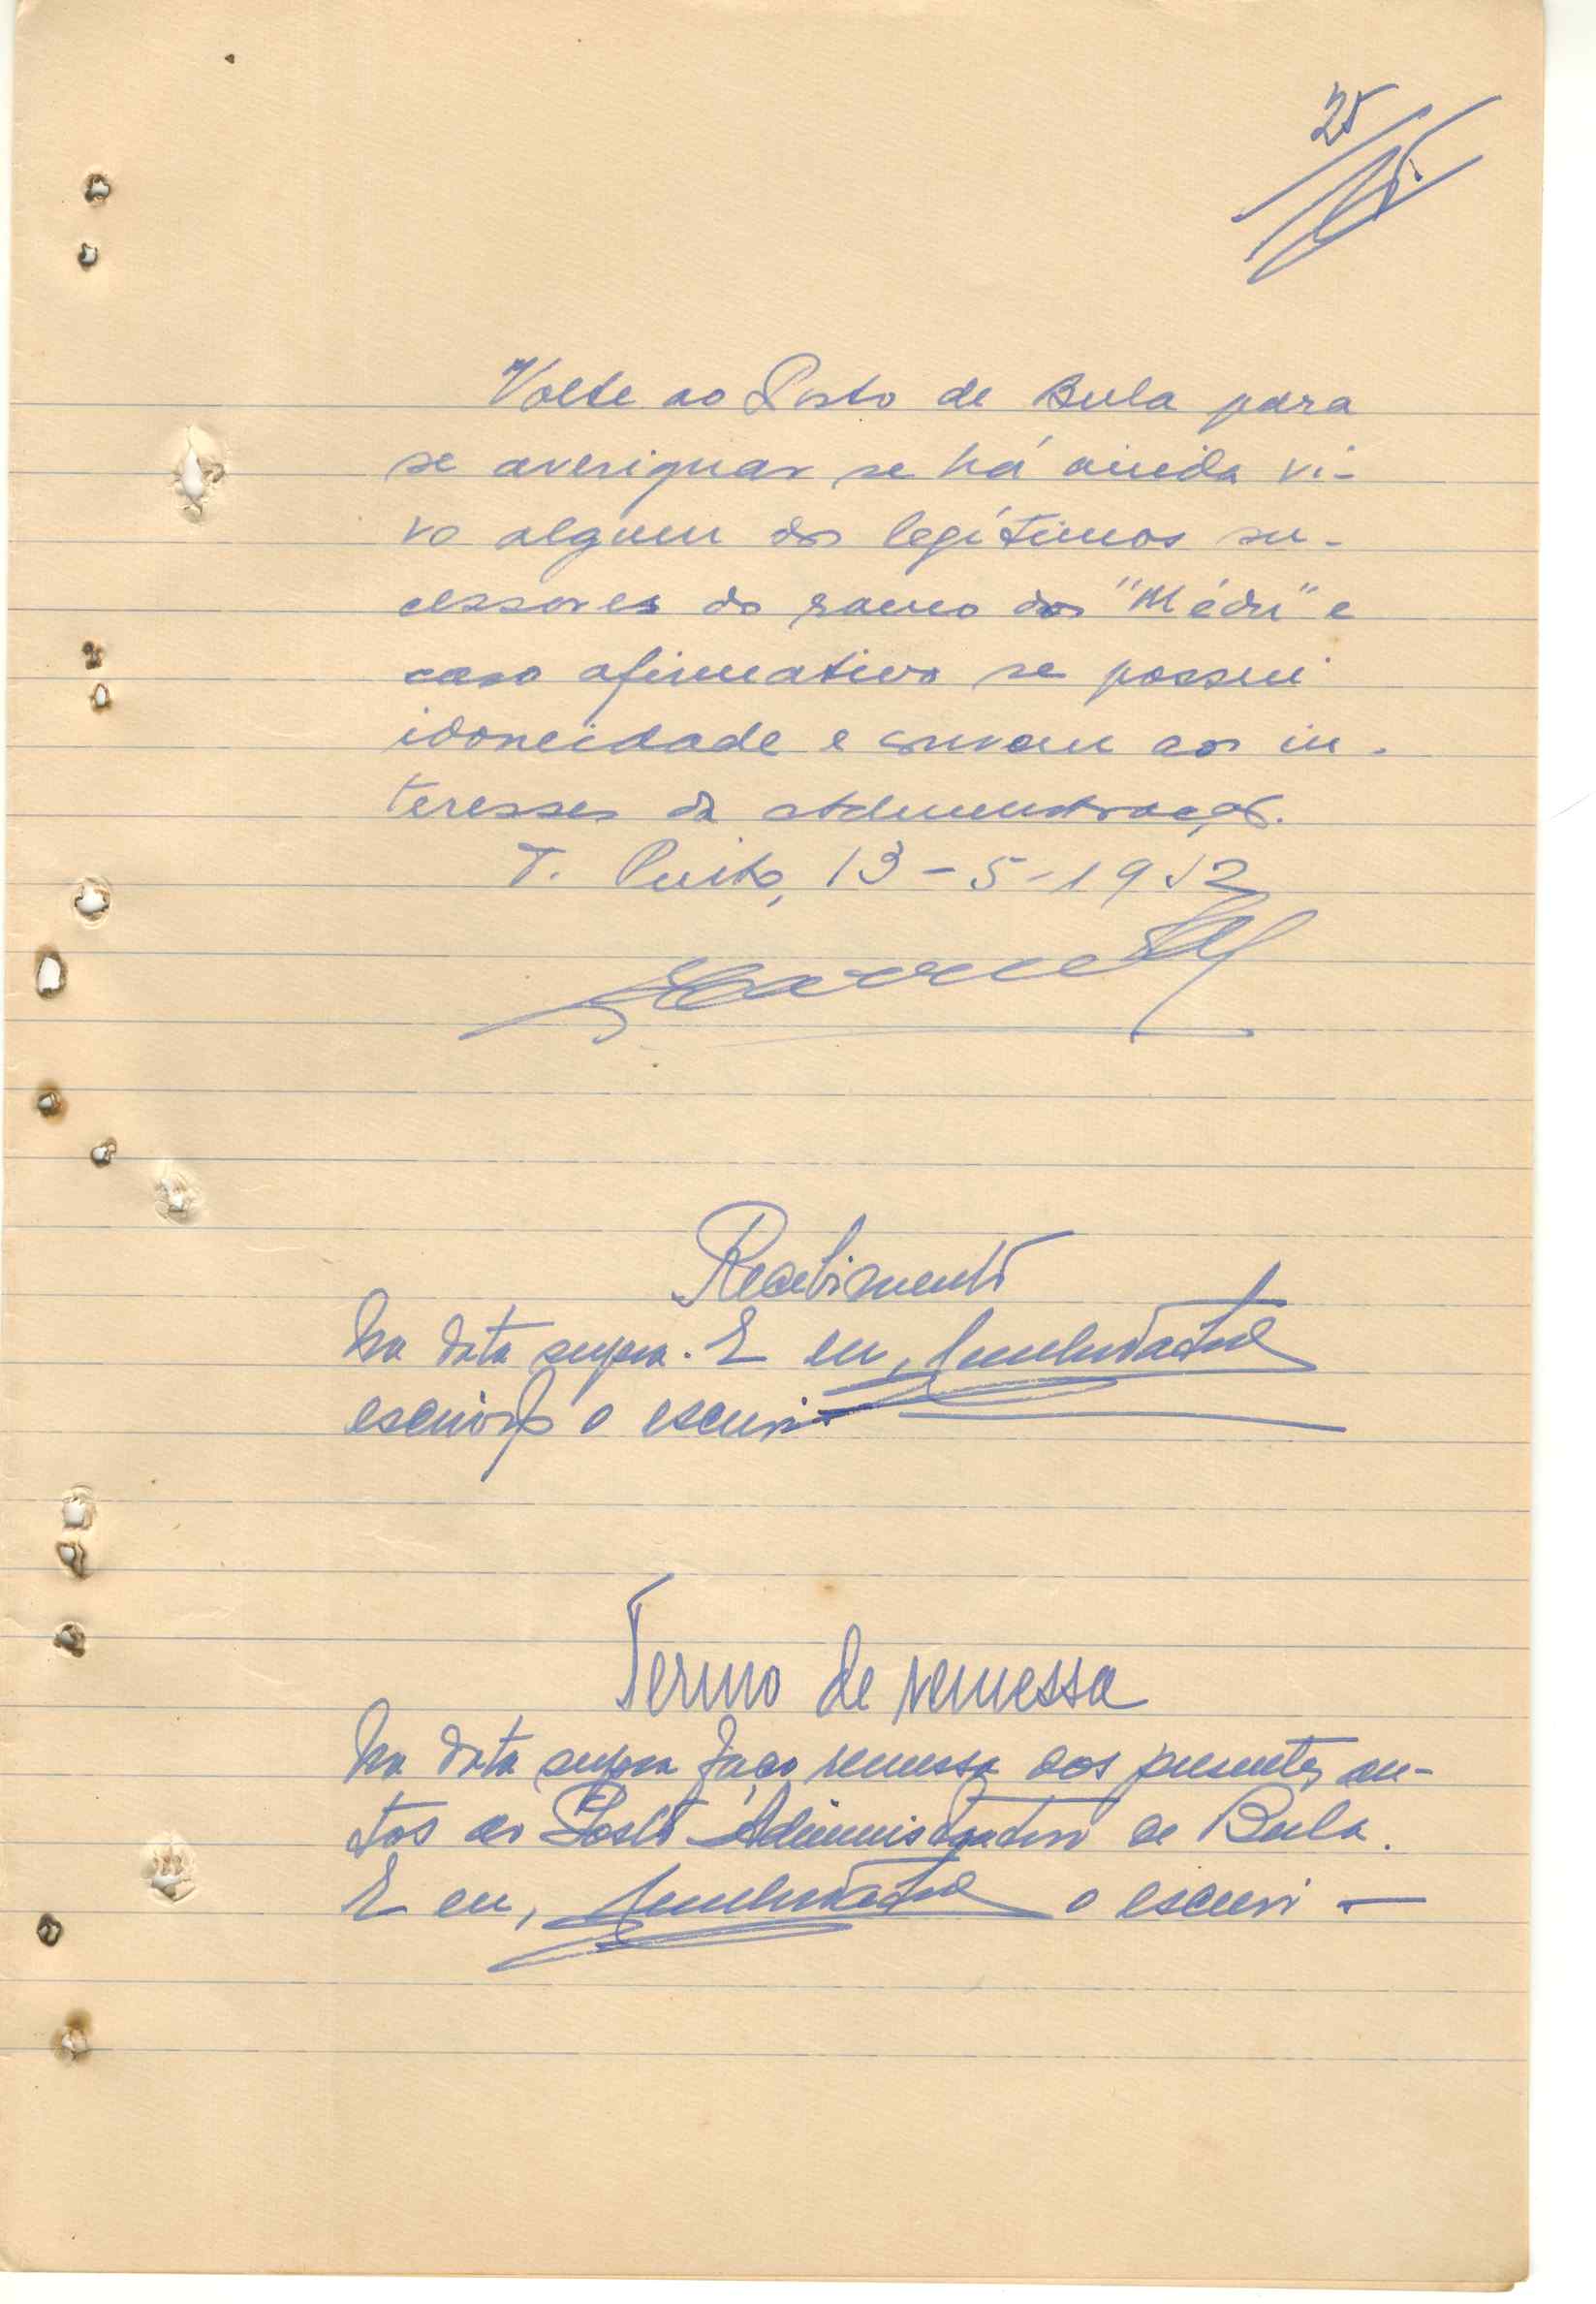 25
Volte ao Posto de Bula para
se averiguar se há ainda vi-
vo alguem dos legítimos su-
cessores do ramo dos "Médu" e
caso afirmativo se possui
idoneidade e convem aos in-
teresses da Administração.
T. Pinto, 13-5-1952
Recebimento
Na data supra. E eu,
escrivão o escrevi
Termo de remessa
Na data supra faço remessa dos presentes au-
tos ao Posto Administrativo de Bula.
E eu, o escrevi —